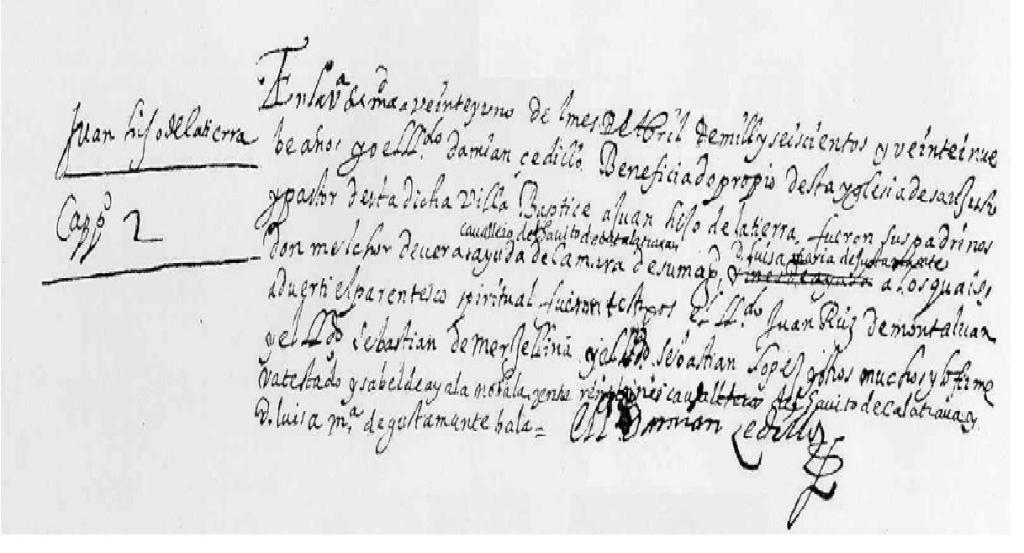 Juan hijo de la tierra
Capp.º 2
En la v.ª de m.d a veinte y uno del mes de Abril de mill y seiscientos y veinte i nue
be años yo el ll.do damian cedillo Beneficiado propio desta yglesia de
y pastor desta dicha Villa Baptice a Juan hijo de la tierra, fueron sus padrinos
cavallero del havito de calatrava
don melchor de vera ayuda de camara de su mag.d, d. luisa maria de justamante a los quais
aduerti el parentesco spiritual fueron testigos El ll.do Juan Ruiz de montaluan
y el ll.do sebastian de y el ll.do sebastian lopez y otros muchos y lo firme
va testado ysabel de ayala no vala, y entre cavallero del havito de calatrava y
d. luisa m.ª de gustamante bala = El ll.do Damian Cedillo